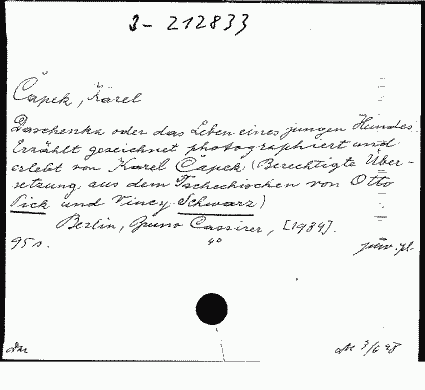 3- 212833
Čapek, Karel
Daschenka oder das Leben eines jungen Hundes.
Erzählt gezeichnet photographiert und
erlebt von Karel Čapek. (Berechtigte Über-
setzung aus dem Tschechischen von Otto
Pick und Vincy Schwarz)
Berlin, Bruno Cassirer, [1934].
95 s. 4°
juv. pl.